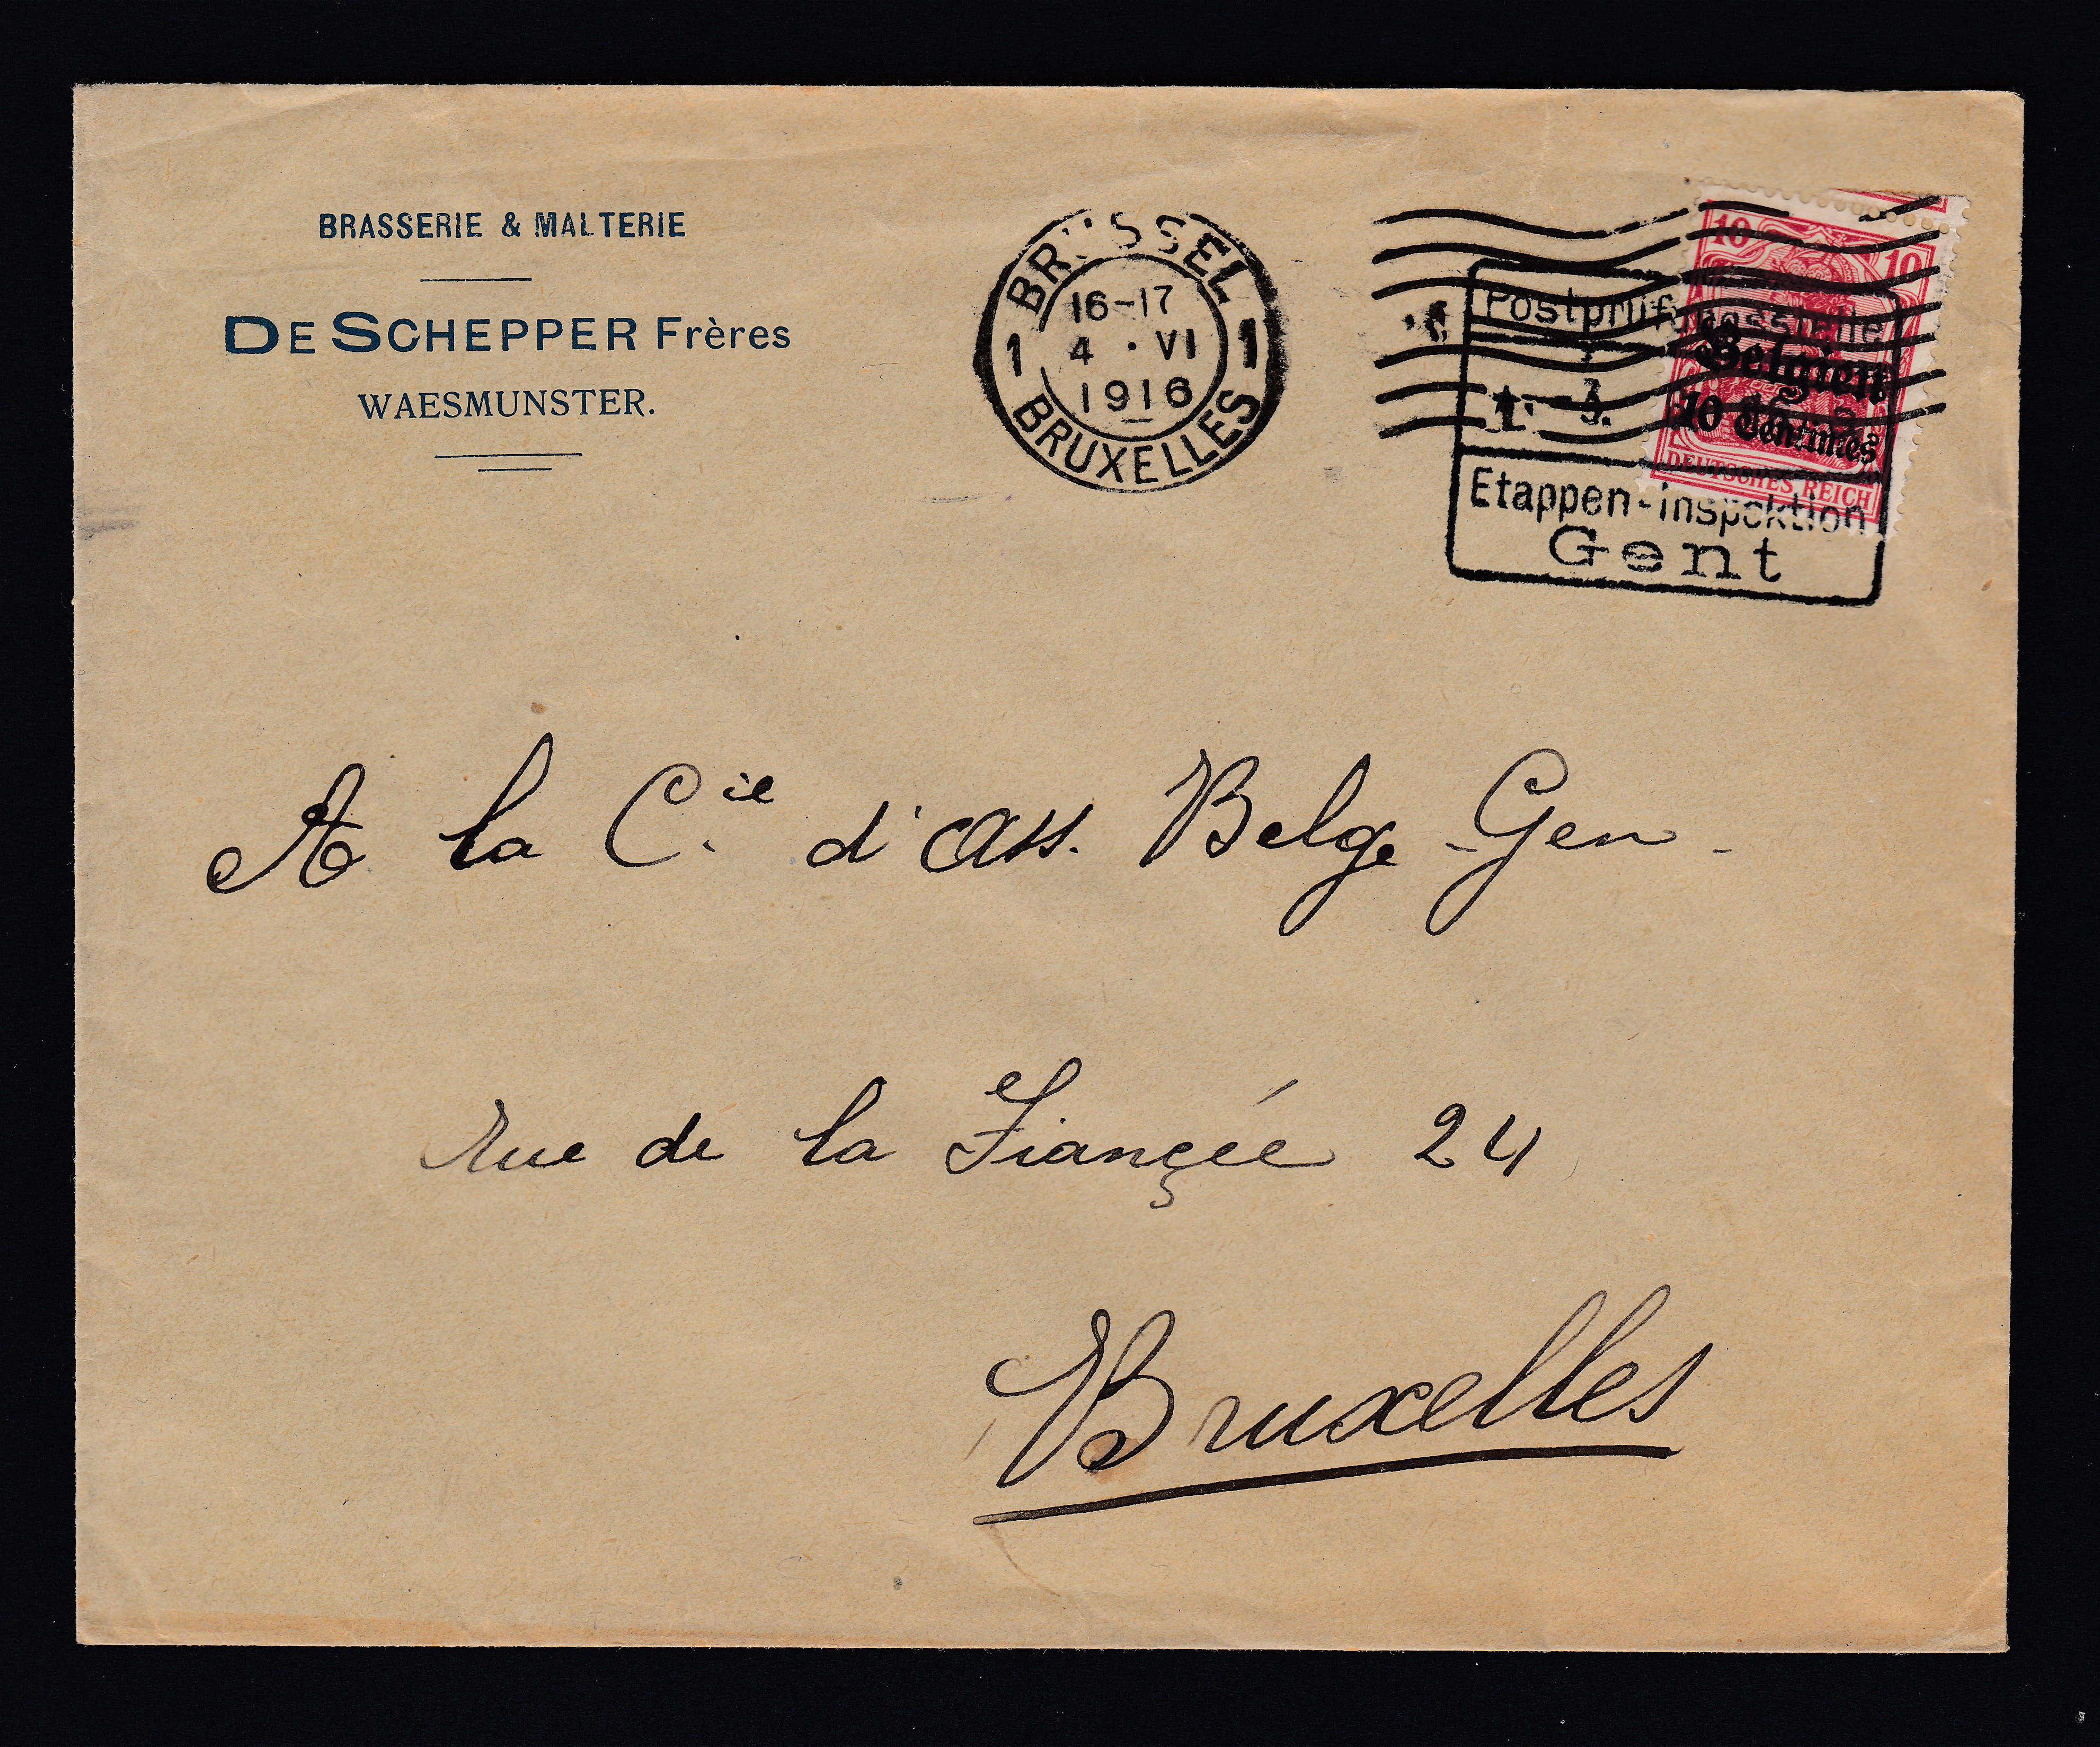 BRASSERIE & MALTERIE
DE SCHEPPER Frères
WAESMUNSTER.
BRUSSEL
16-17
4 · VI
1916
1 1
BRUXELLES
10 10
Belgien
10 Centimes
DEUTSCHES REICH
Postprüfungsstelle
Etappen-Inspektion
Gent
A la Cie d'Ass. Belge-Gen-
Rue de la Fiançée 24
Bruxelles